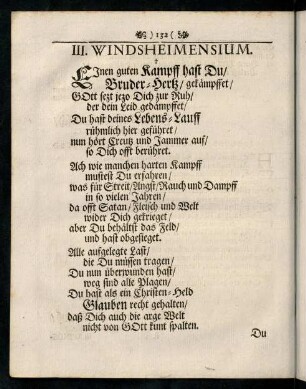 ) 132 (
III. WINDSHEIMENSIUM.
EInen guten Kampff hast Du/
Bruder-Hertz/ gekämpffet/
GOtt sezt jezo Dich zur Ruh/
der dem Leid gedämpffet/
Du hast deines Lebens-Lauff
rühmlich hier geführet/
nun hört Creutz und Jammer auf/
so Dich offt berühret.
Ach wie manchen harten Kampff
mustest Du erfahren/
was für Streit/Angst/Rauch und Dampff
in so vielen Jahren/
da offt Satan/Fleisch und Welt
wider Dich gekrieget/
aber Du behältst das Feld/
und hast obgesieget.
Alle aufgelegte Last/
die Du müssen tragen/
Du nun überwunden hast/
weg sind alle Plagen/
Du hast als ein Christen-Held
Glauben recht gehalten/
daß Dich auch die arge Welt
nicht von GOtt kunt spalten.
Du